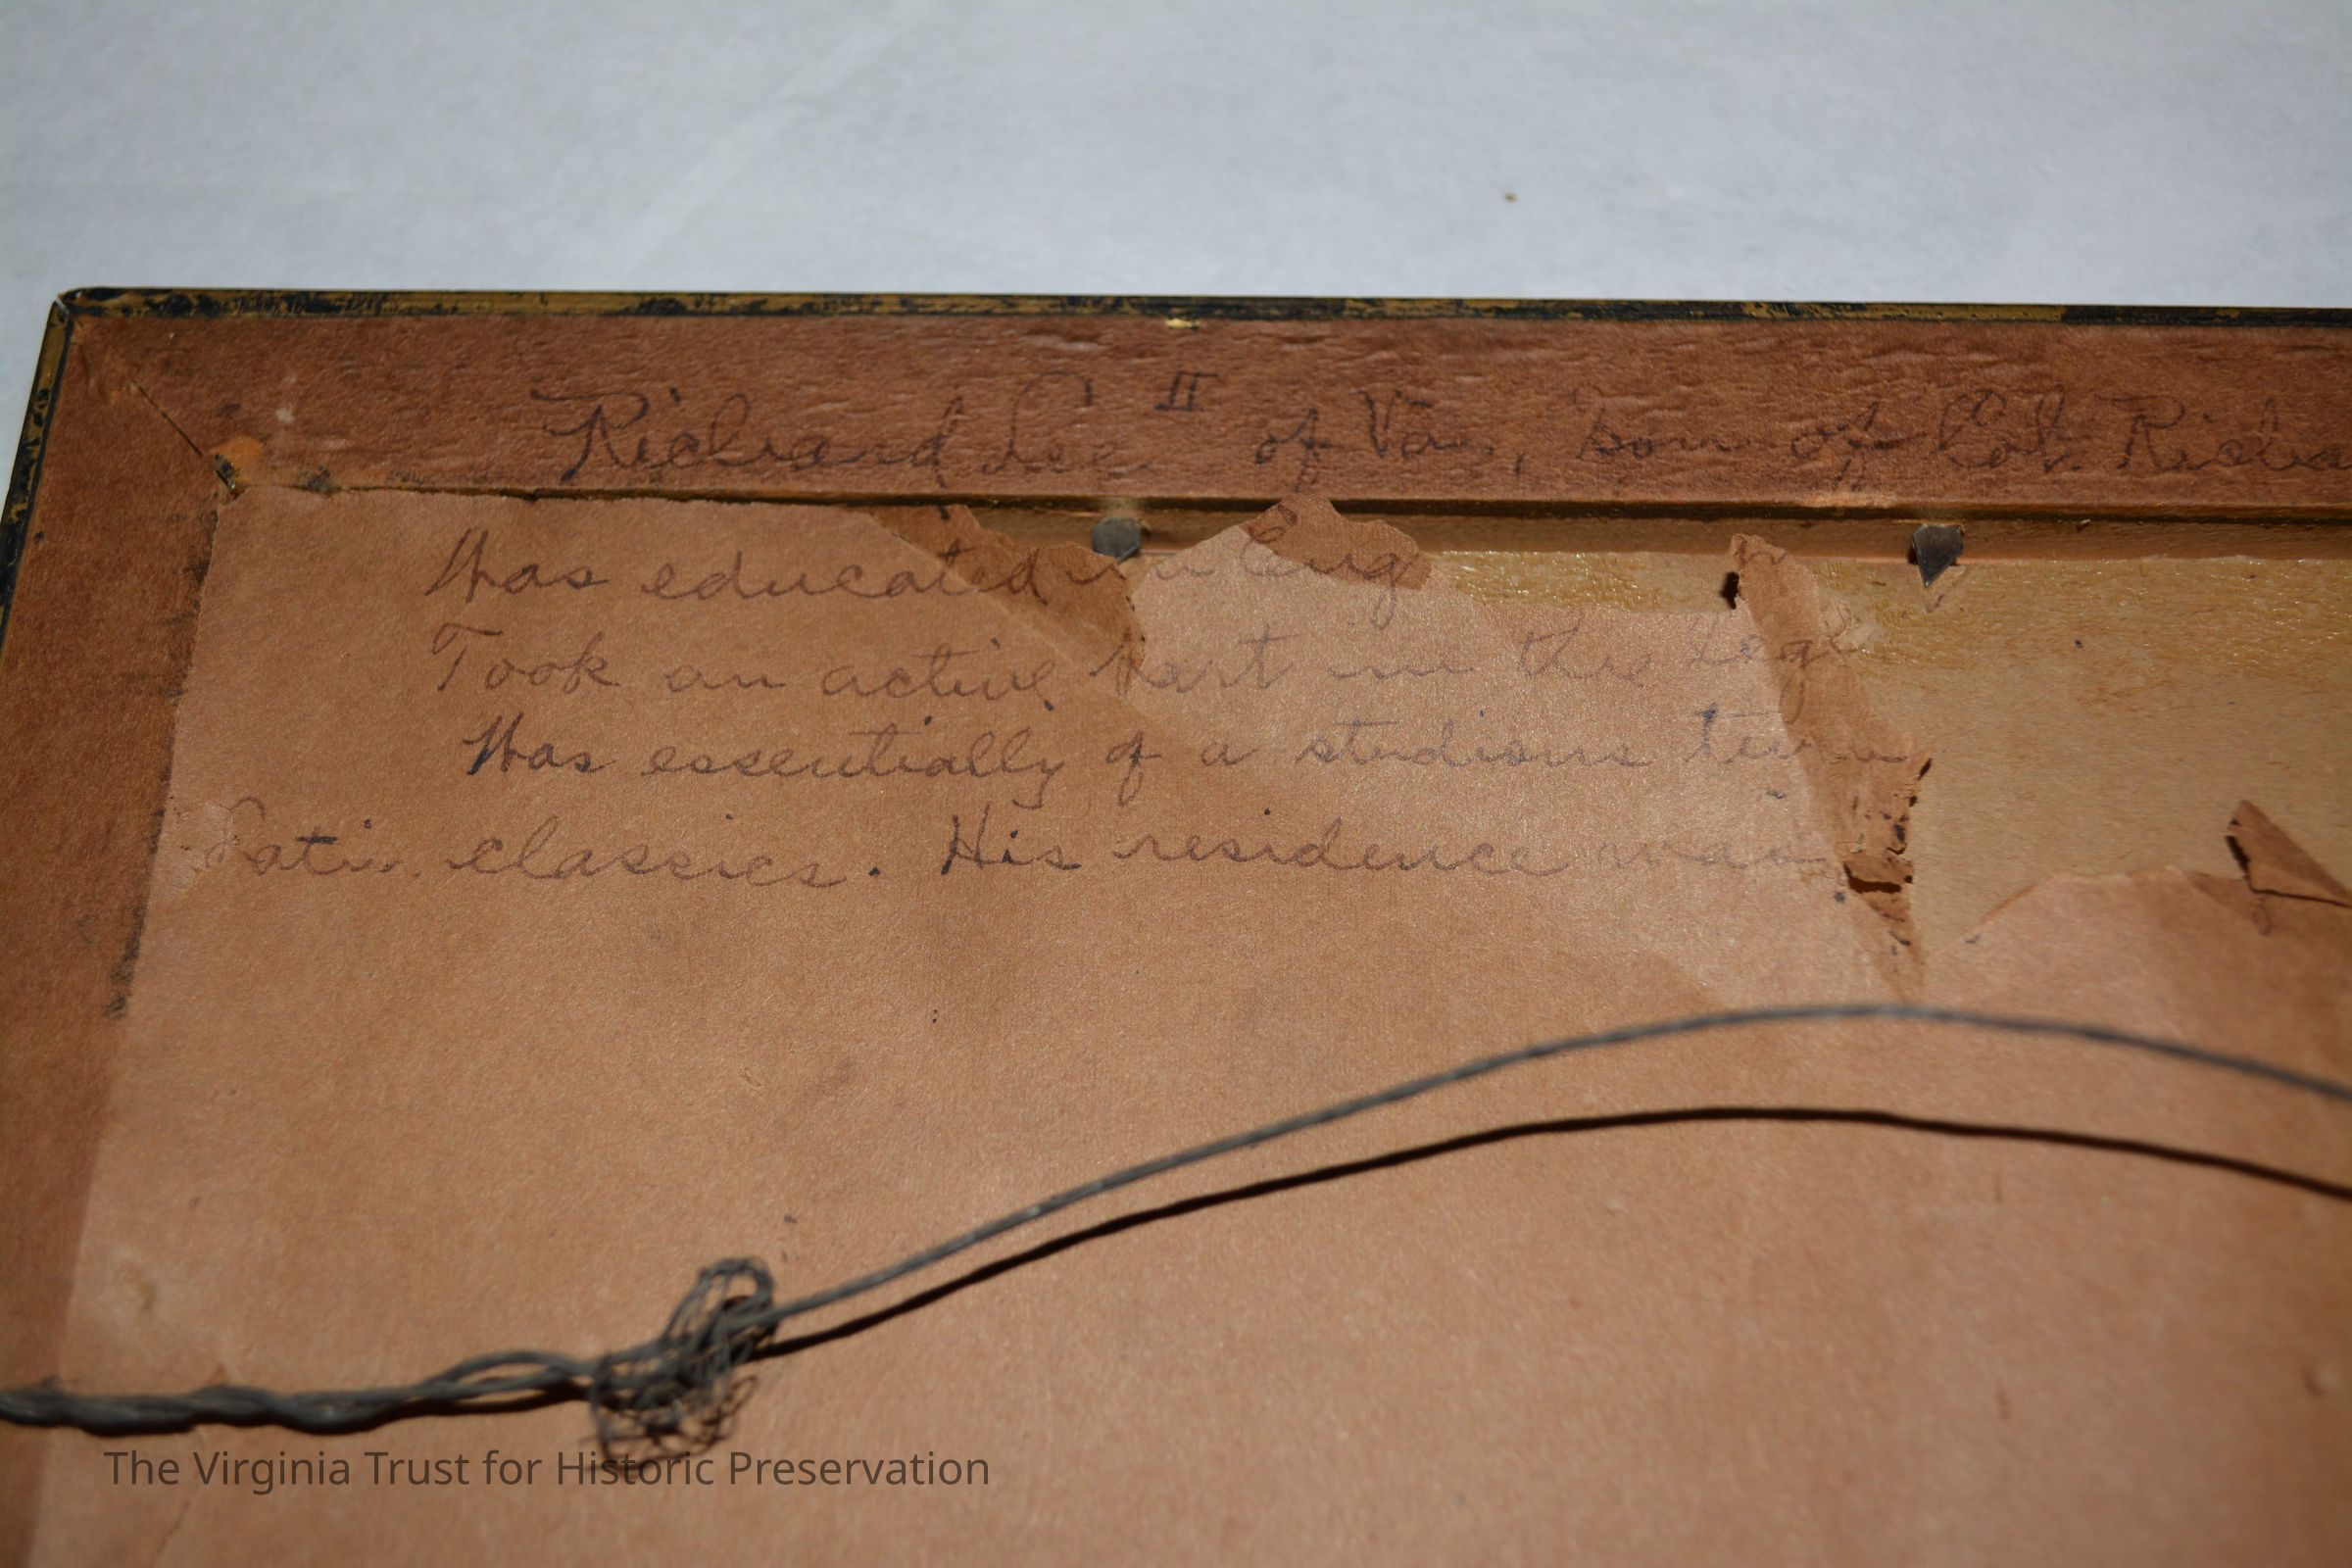 Richard Lee II of Va., Son of Col. Richa
Was educated in Eng
Took an active part in the Leg
Was essentially of a studious
Latin classics. His residence was
The Virginia Trust for Historic Preservation